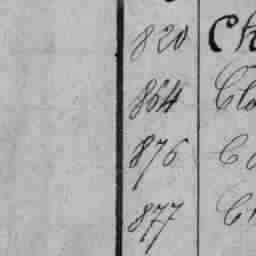 820 Ch
864 Cla
876 C
877 C